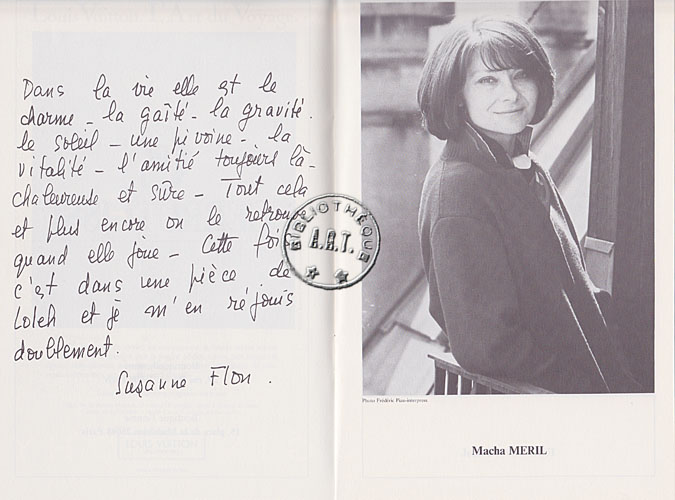 Dans la vie elle est le
charme - la gaîté - la gravité.
le soleil - une pivoine - la
vitalité - l'amitié toujours là -
chaleureuse et sûre - Tout cela
et plus encore on le retrouve
quand elle joue - Cette fois
c'est dans une pièce de
Loleh et je m'en réjouis
doublement.
Suzanne Flon.
BIBLIOTHÈQUE
A.R.T.
Photo Frédéric
Macha MERIL